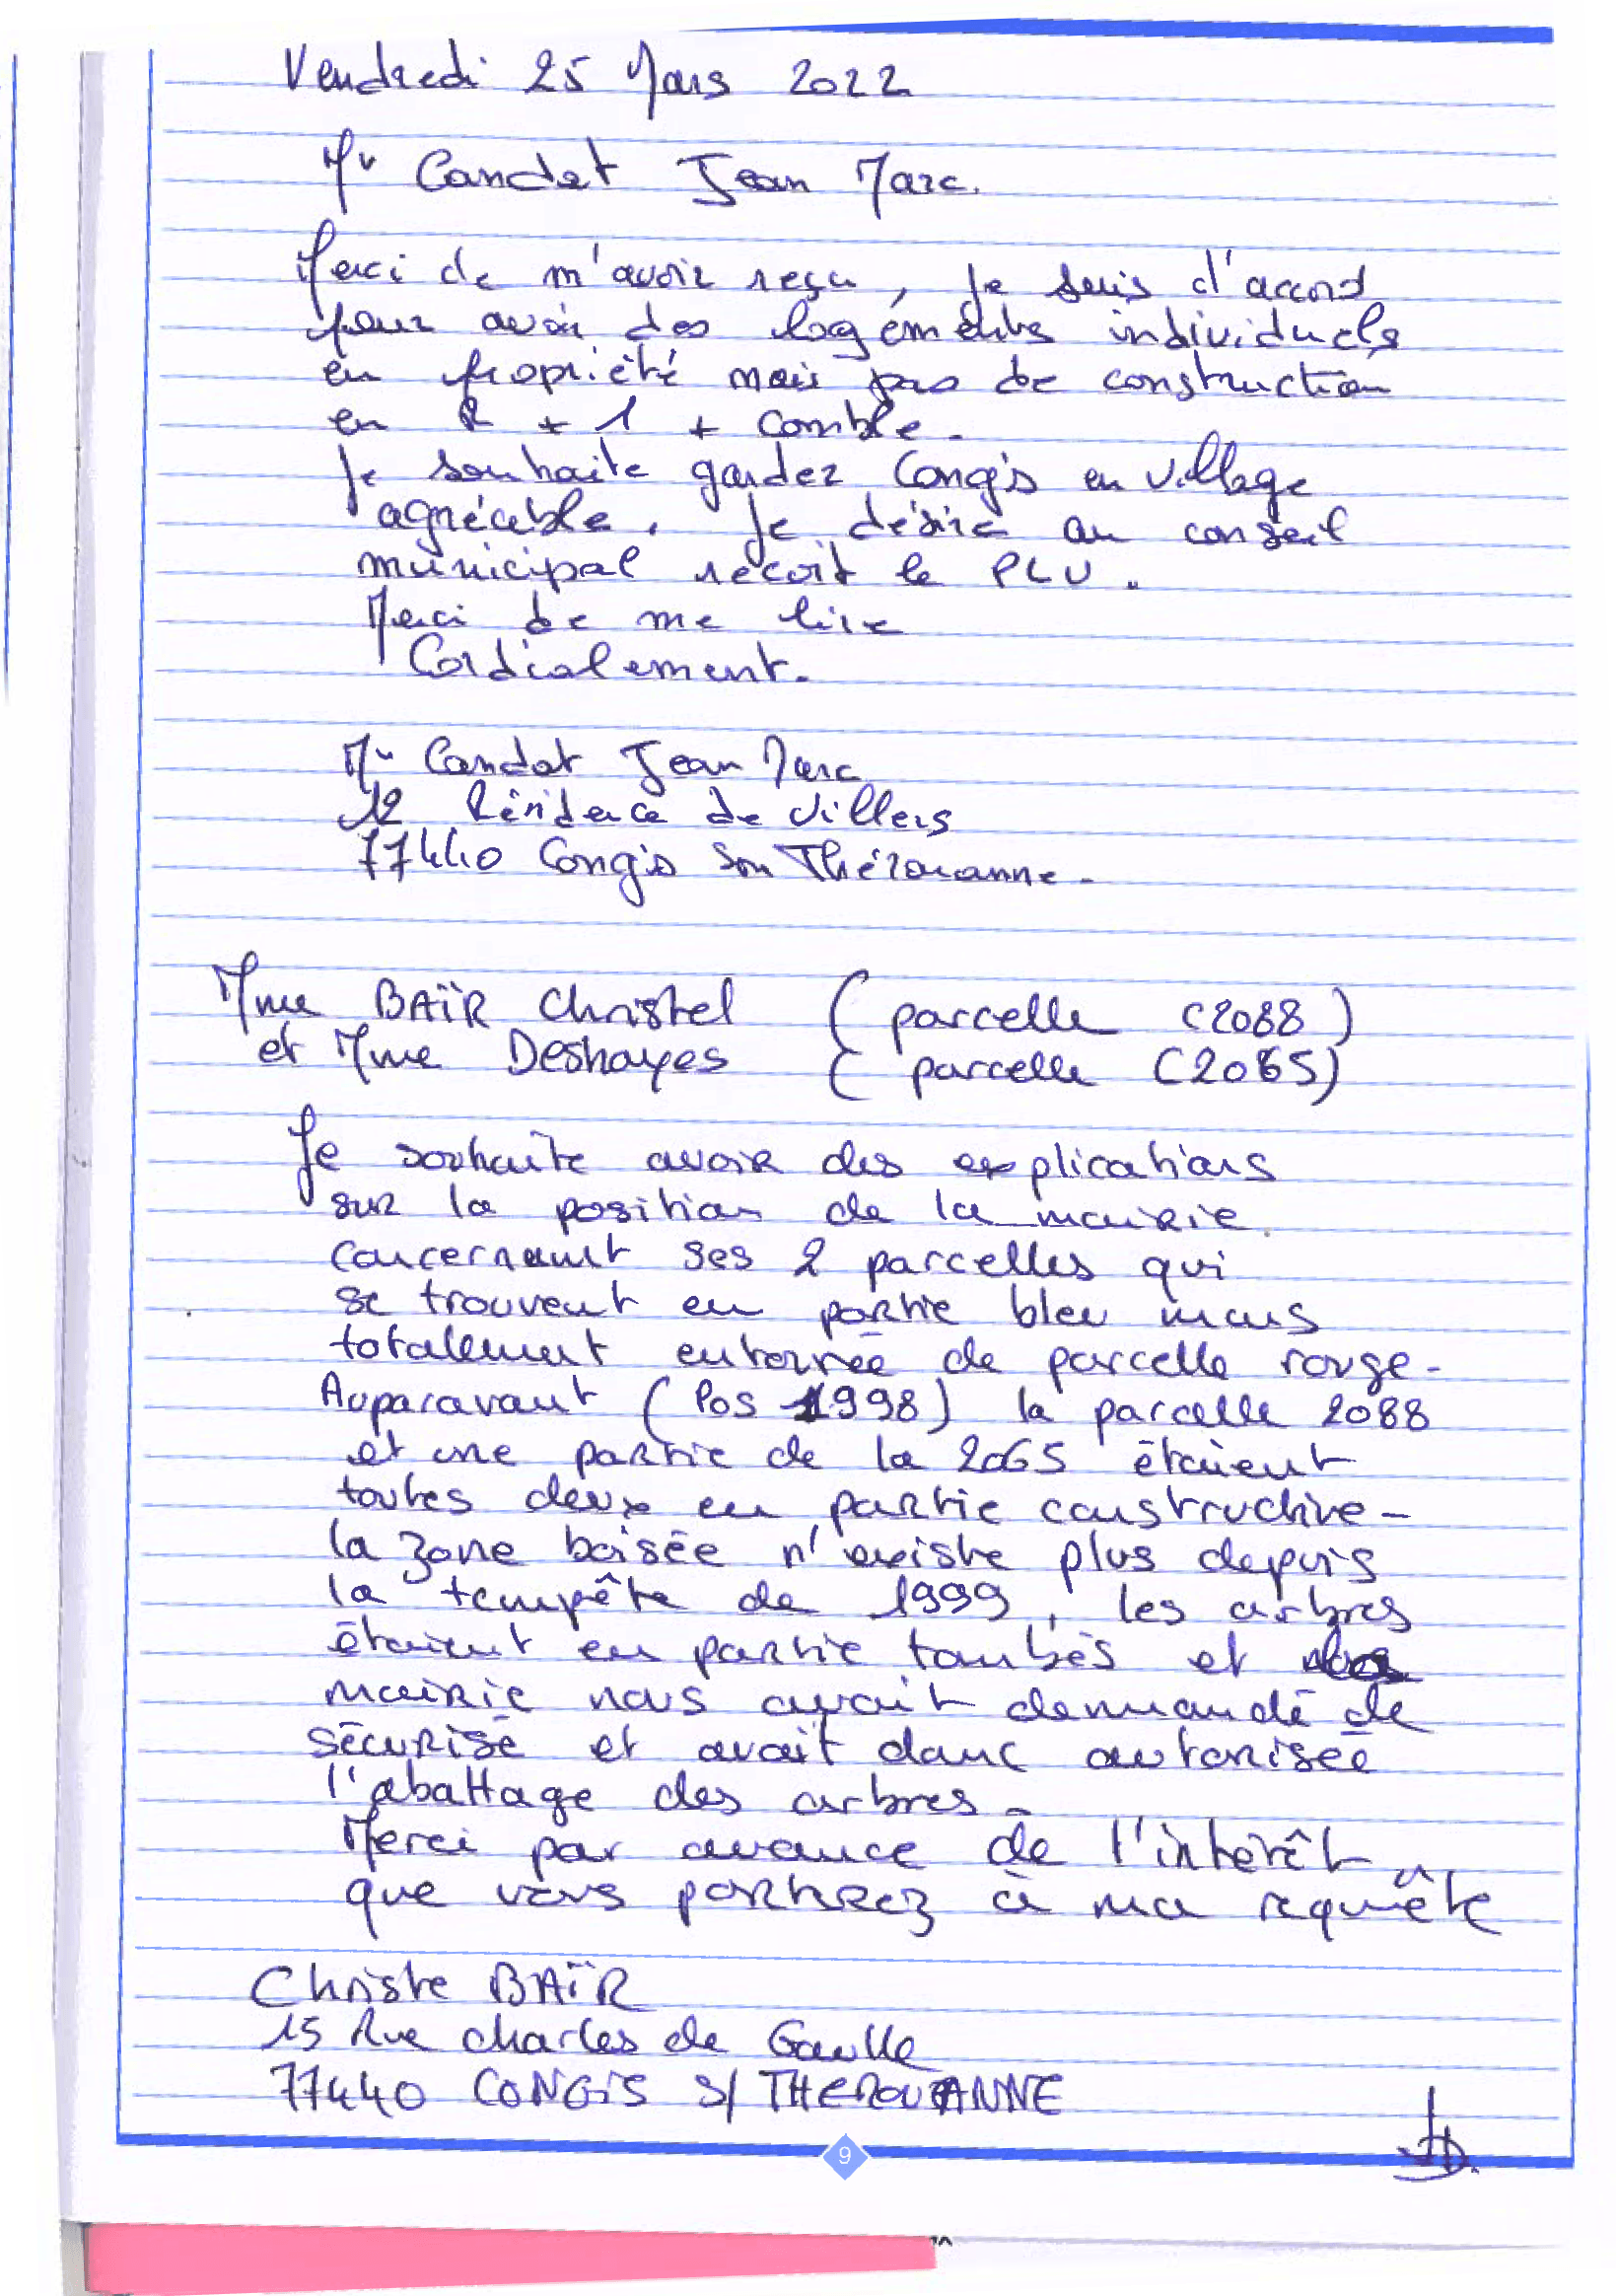 Vendredi 25 Mars 2022
Mr Candat Jean Marc.
Merci de m'avoir reçu, Je suis d'accord
pour avoir des logements individuels
en propriété mais pas de construction
en R + 1 + comble.
Je souhaite gardez Congis en village
agréable. Je désire au conseil
municipal recoit le PLU.
Merci de me lire
Cordialement.
Mr Candat Jean Marc
12 Résidence de Villers
77440 Congis Sur Thérouanne.
Mme BAÏR Christel ( parcelle C2088 )
et Mme Deshayes ( parcelle C2065)
Je souhaite avoir des explications
sur la position de la mairie
concernant ses 2 parcelles qui
se trouvent en partie bleu mais
totalement entourée de parcelle rouge-
Auparavant ( Pos 1998) la parcelle 2088
et une partie de la 2065 étaient
toutes deux en partie constructive-
la zone boisée n'existe plus depuis
la tempête de 1999, les arbres
étaient en partie tombés et
mairie nous avait demandé de
sécurisé et avait donc autorisée
l'abattage des arbres.
Merci par avance de l'intérêt
que vous porterez à ma requête
Christe BAÏR
15 Rue charles de Gaulle
77440 CONGIS S/ THEROUANNE
9